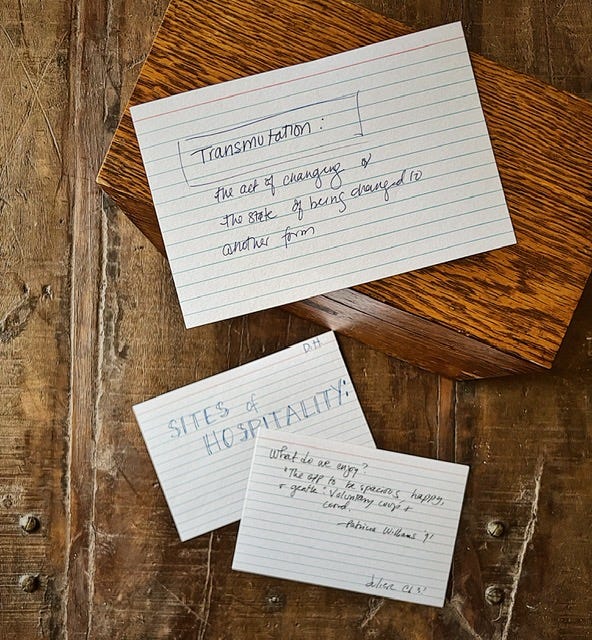 Transmutation:
the act of changing or
the state of being changed to
another form
D.H
SITES of
HOSPITALITY:
What do we enjoy?
"The opp to be spacious, happy,
+ gentle". Voluntary coop +
coord.
—Patricia Williams '91